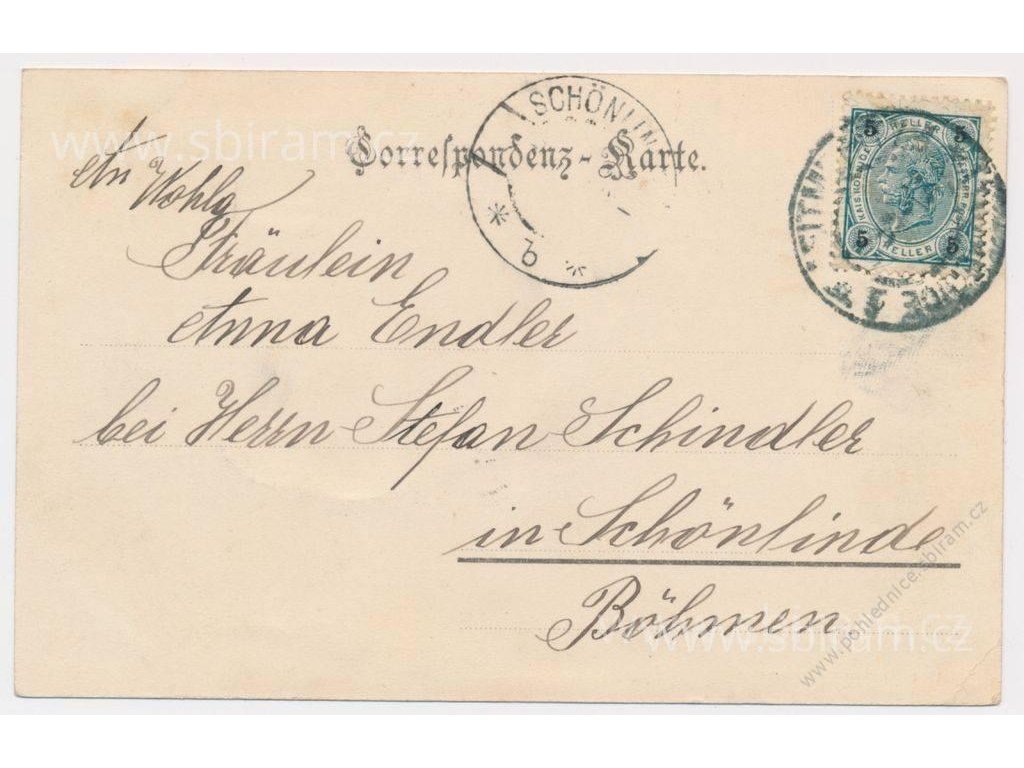 Correspondenz-Karte.
An
Wohlg
Fräulein
Anna Endler
bei Herrn Stefan Schindler
in Schönlinde
Böhmen
SCHÖNLIN
* 6 *
5 HELLER 5
5 HELLER 5
www.sbiram.cz
www.sbiram.cz
www.pohlednice.sbiram.cz